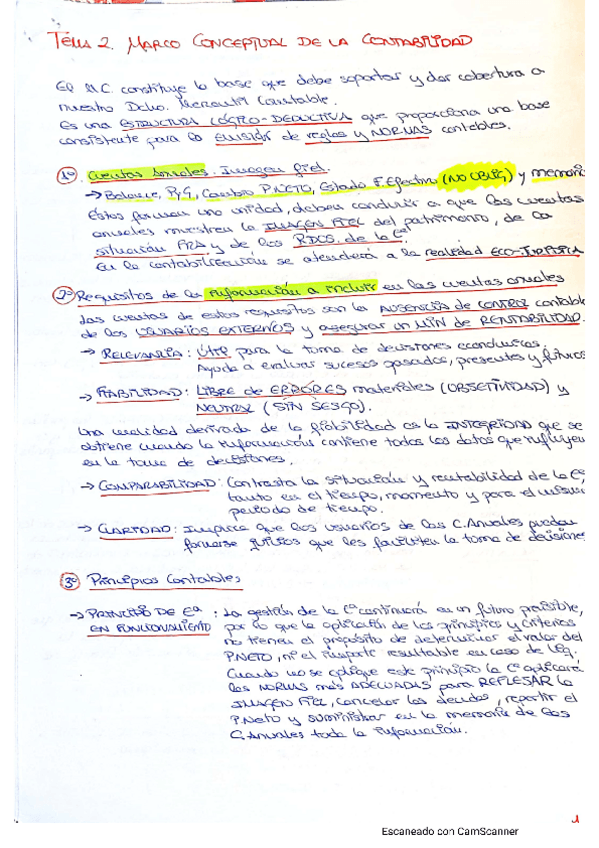 TEMA 2. MARCO CONCEPTUAL DE LA CONTABILIDAD
El M.C. constituye la base que debe soportar y dar cobertura a
nuestro Dcho. Mercantil Contable.
Es una ESTRUCTURA LÓGICO-DEDUCTIVA que proporciona una base
consistente para la EMISIÓN de reglas y NORMAS contables.
1º Cuentas Anuales. Imagen fiel.
→ Balance, PyG, Cambio P.NETO, Estado F. Efectivo (NO OBLIG) y memoria
Estos forman una unidad, deben conducir a que las cuentas
anuales muestren la IMAGEN FIEL del patrimonio, de la
situación FRA y de los RDOS. de la Cª.
En la contabilización se atenderá a la realidad ECO-JURÍDICA
2º Requisitos de la información a incluir en las cuentas anuales
Las cuentas de estos requisitos son la AUSENCIA de CONTROL contable
de los USUARIOS EXTERNOS y asegurar un MIN de RENTABILIDAD.
→ RELEVANCIA: ÚTIL para la toma de decisiones económicas.
Ayuda a evaluar sucesos pasados, presentes y futuros
→ FIABILIDAD: LIBRE de ERRORES materiales (OBJETIVIDAD) y
NEUTRAL (SIN SESGO).
Una cualidad derivada de la fiabilidad es la INTEGRIDAD que se
obtiene cuando la información contiene todos los datos que influyen
en la toma de decisiones.
→ COMPARABILIDAD: Contrasta la situación y rentabilidad de la Cª,
tanto en el tiempo, momento y para el mismo
periodo de tiempo.
→ CLARIDAD: Implica que los usuarios de las C.Anuales puedan
formarse juicios que les faciliten la toma de decisiones
3º Principios Contables
→ PRINCIPIO DE Eª EN FUNCIONAMIENTO: La gestión de la Cª continuará en un futuro previsible,
por lo que la aplicación de los principios y criterios
no tienen el propósito de determinar el valor del
P.NETO, ni el importe resultable en caso de liq.
Cuando no se aplique este principio la Cª aplicará
las NORMAS más ADECUADAS para REFLEJAR la
IMAGEN FIEL, cancelar las deudas, repartir el
P.Neto y suministrar en la memoria de las
C.Anuales toda la información.
1
Escaneado con CamScanner